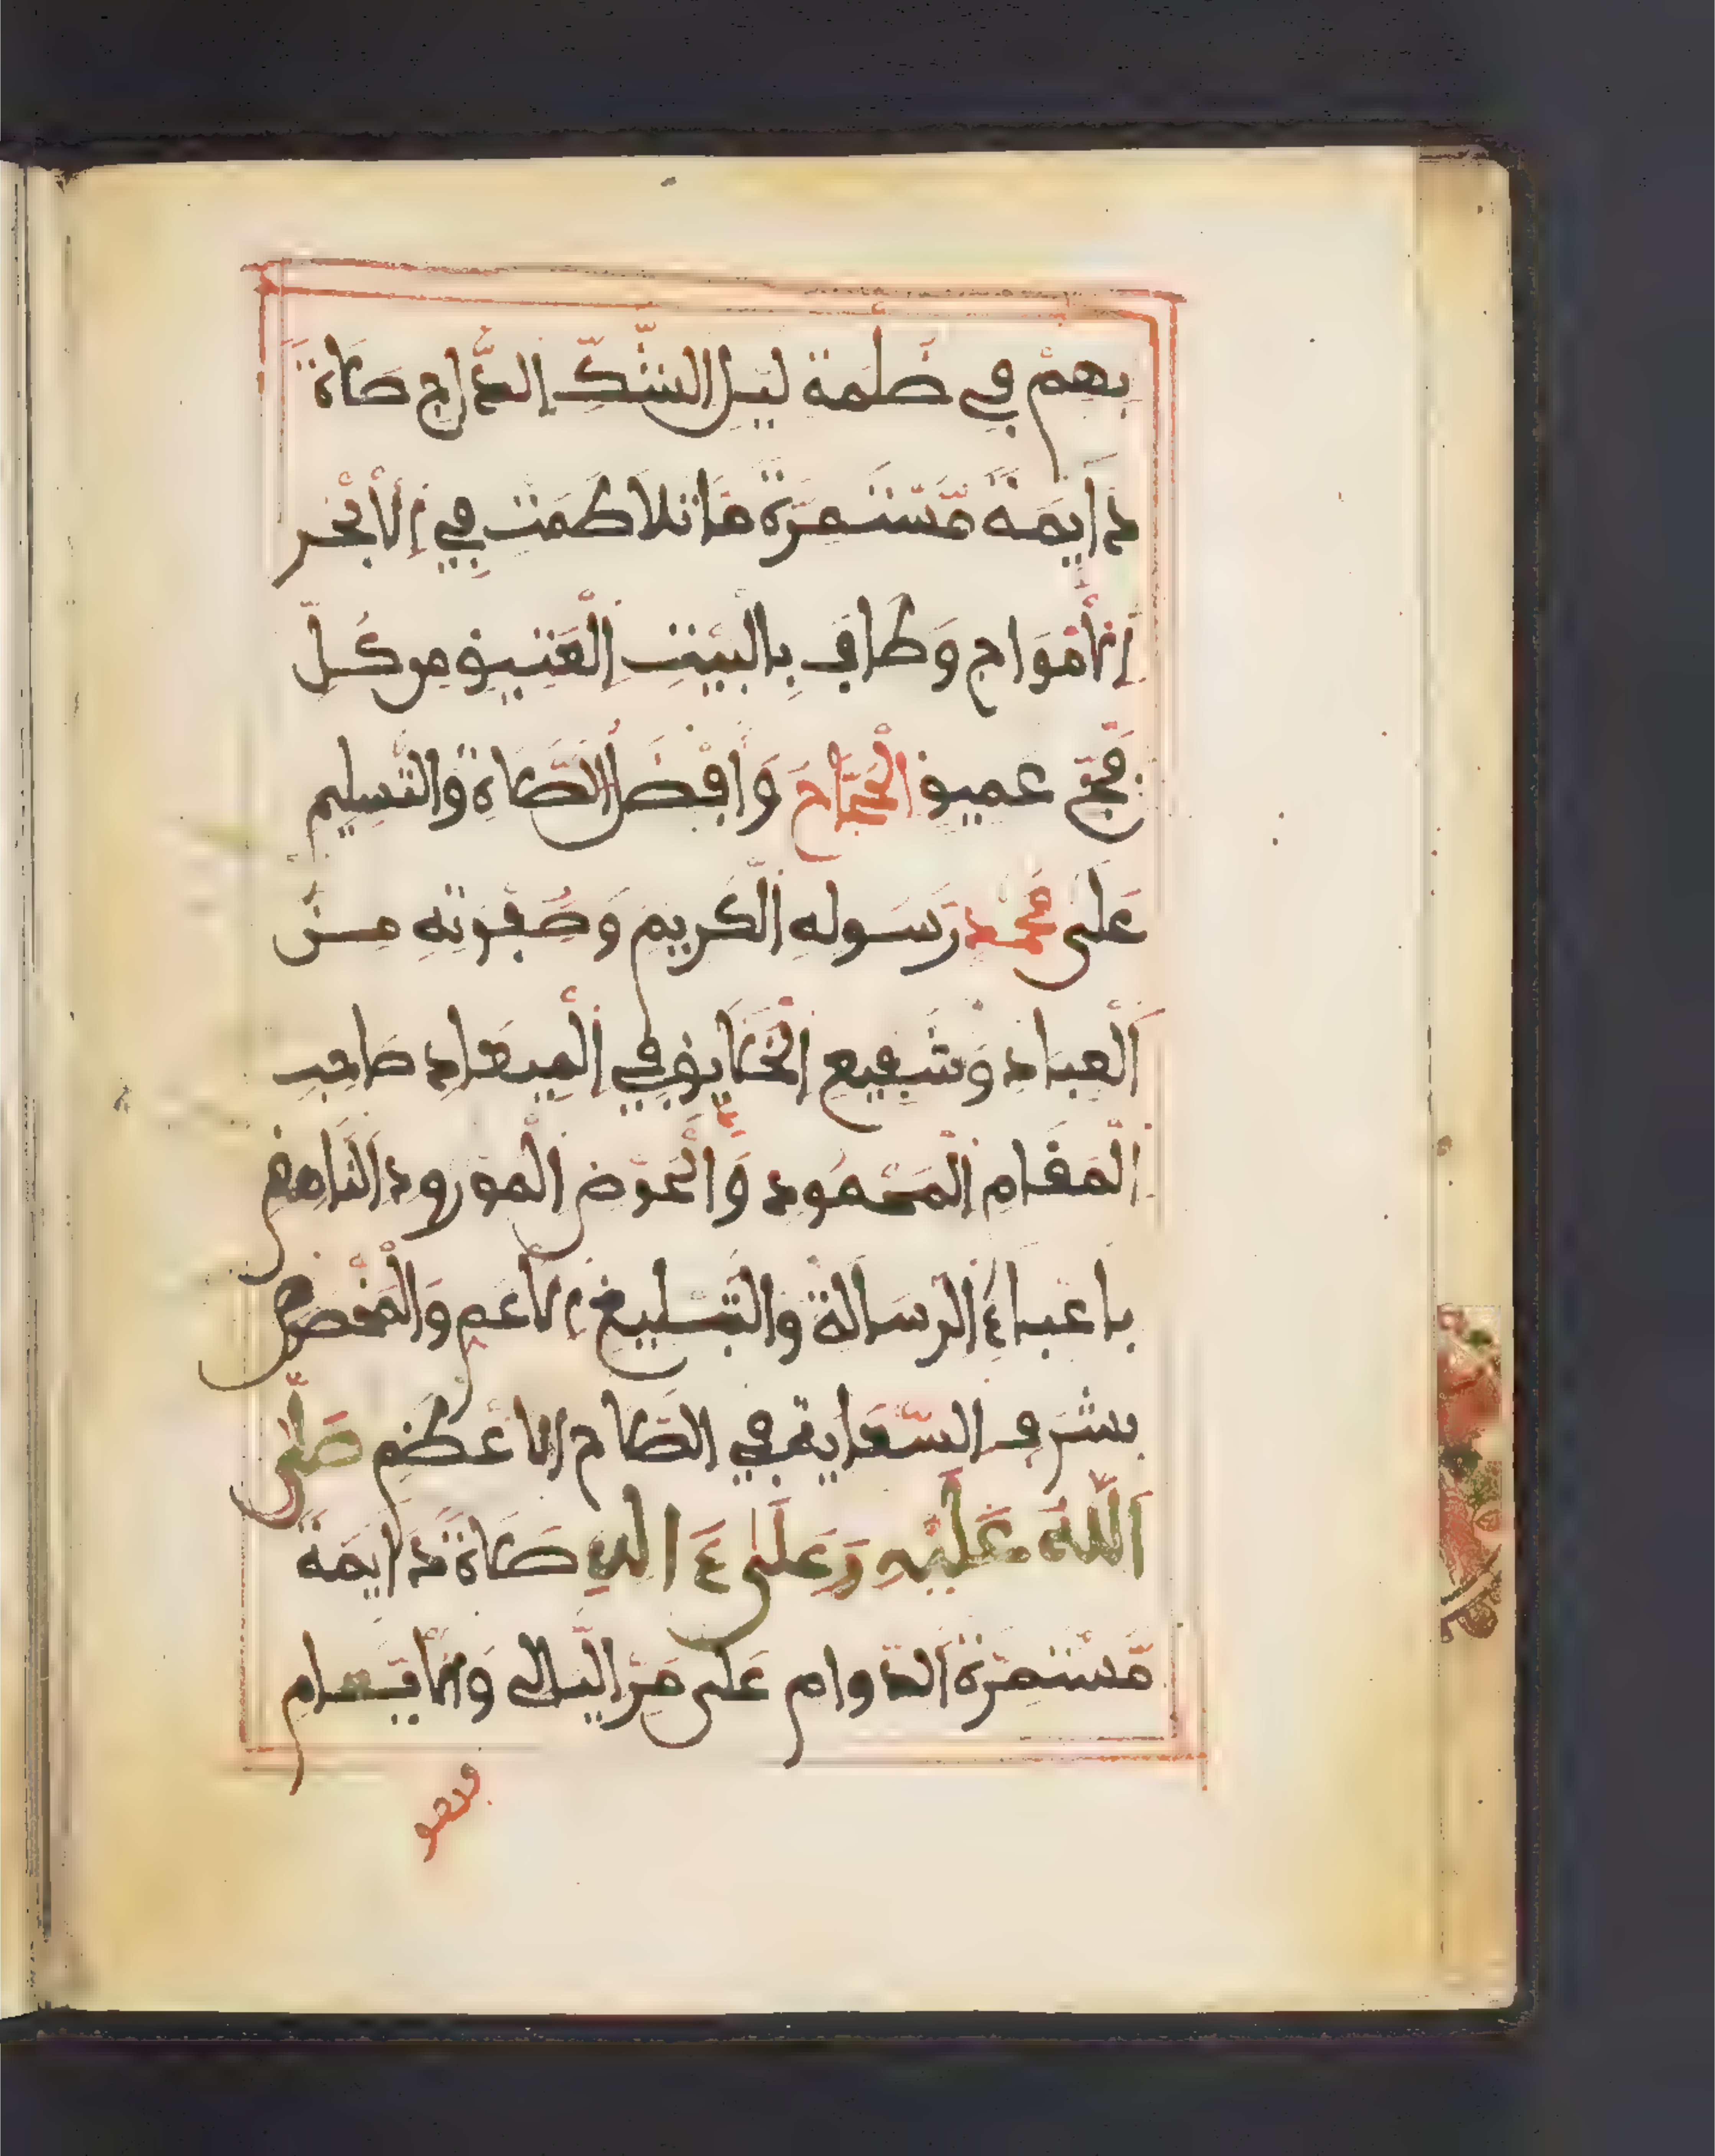 بهم في ظلمة ليل الشّكّ الدّاج صلاة
دَايمَة مّسْتَمرّة مَا تلاطمَت في الأبْحر
الأمْوَاج وَطَاف بِالبَيْتِ الْعَتيق من كُلّ
فجّ عميق الْحجّاج وَأفْضَل الصّلاة وَالتّسليم
عَلى محمّد رَسوله الْكَريم وَصَفْوته منَ
الْعباد وَشَفيع الْخَلَايق في الْميعاد صَاحب
الْمَقَام الْمَحْمُود وَالْحَوْض الْمَوْرود النّاهض
باعْباء الرّسَالة وَالتّبْليغ الاعم وَالْمَخْصوص
بشَرف السّعَاية في الصّلاح الاعْظم صَلّى
اللهُ عَلَيْهِ وَعَلَى ءَالهِ صَلاةً دَايمَةً
مّسْتَمرّة الدّوام عَلى مَرّ اليالي وَالأيّام